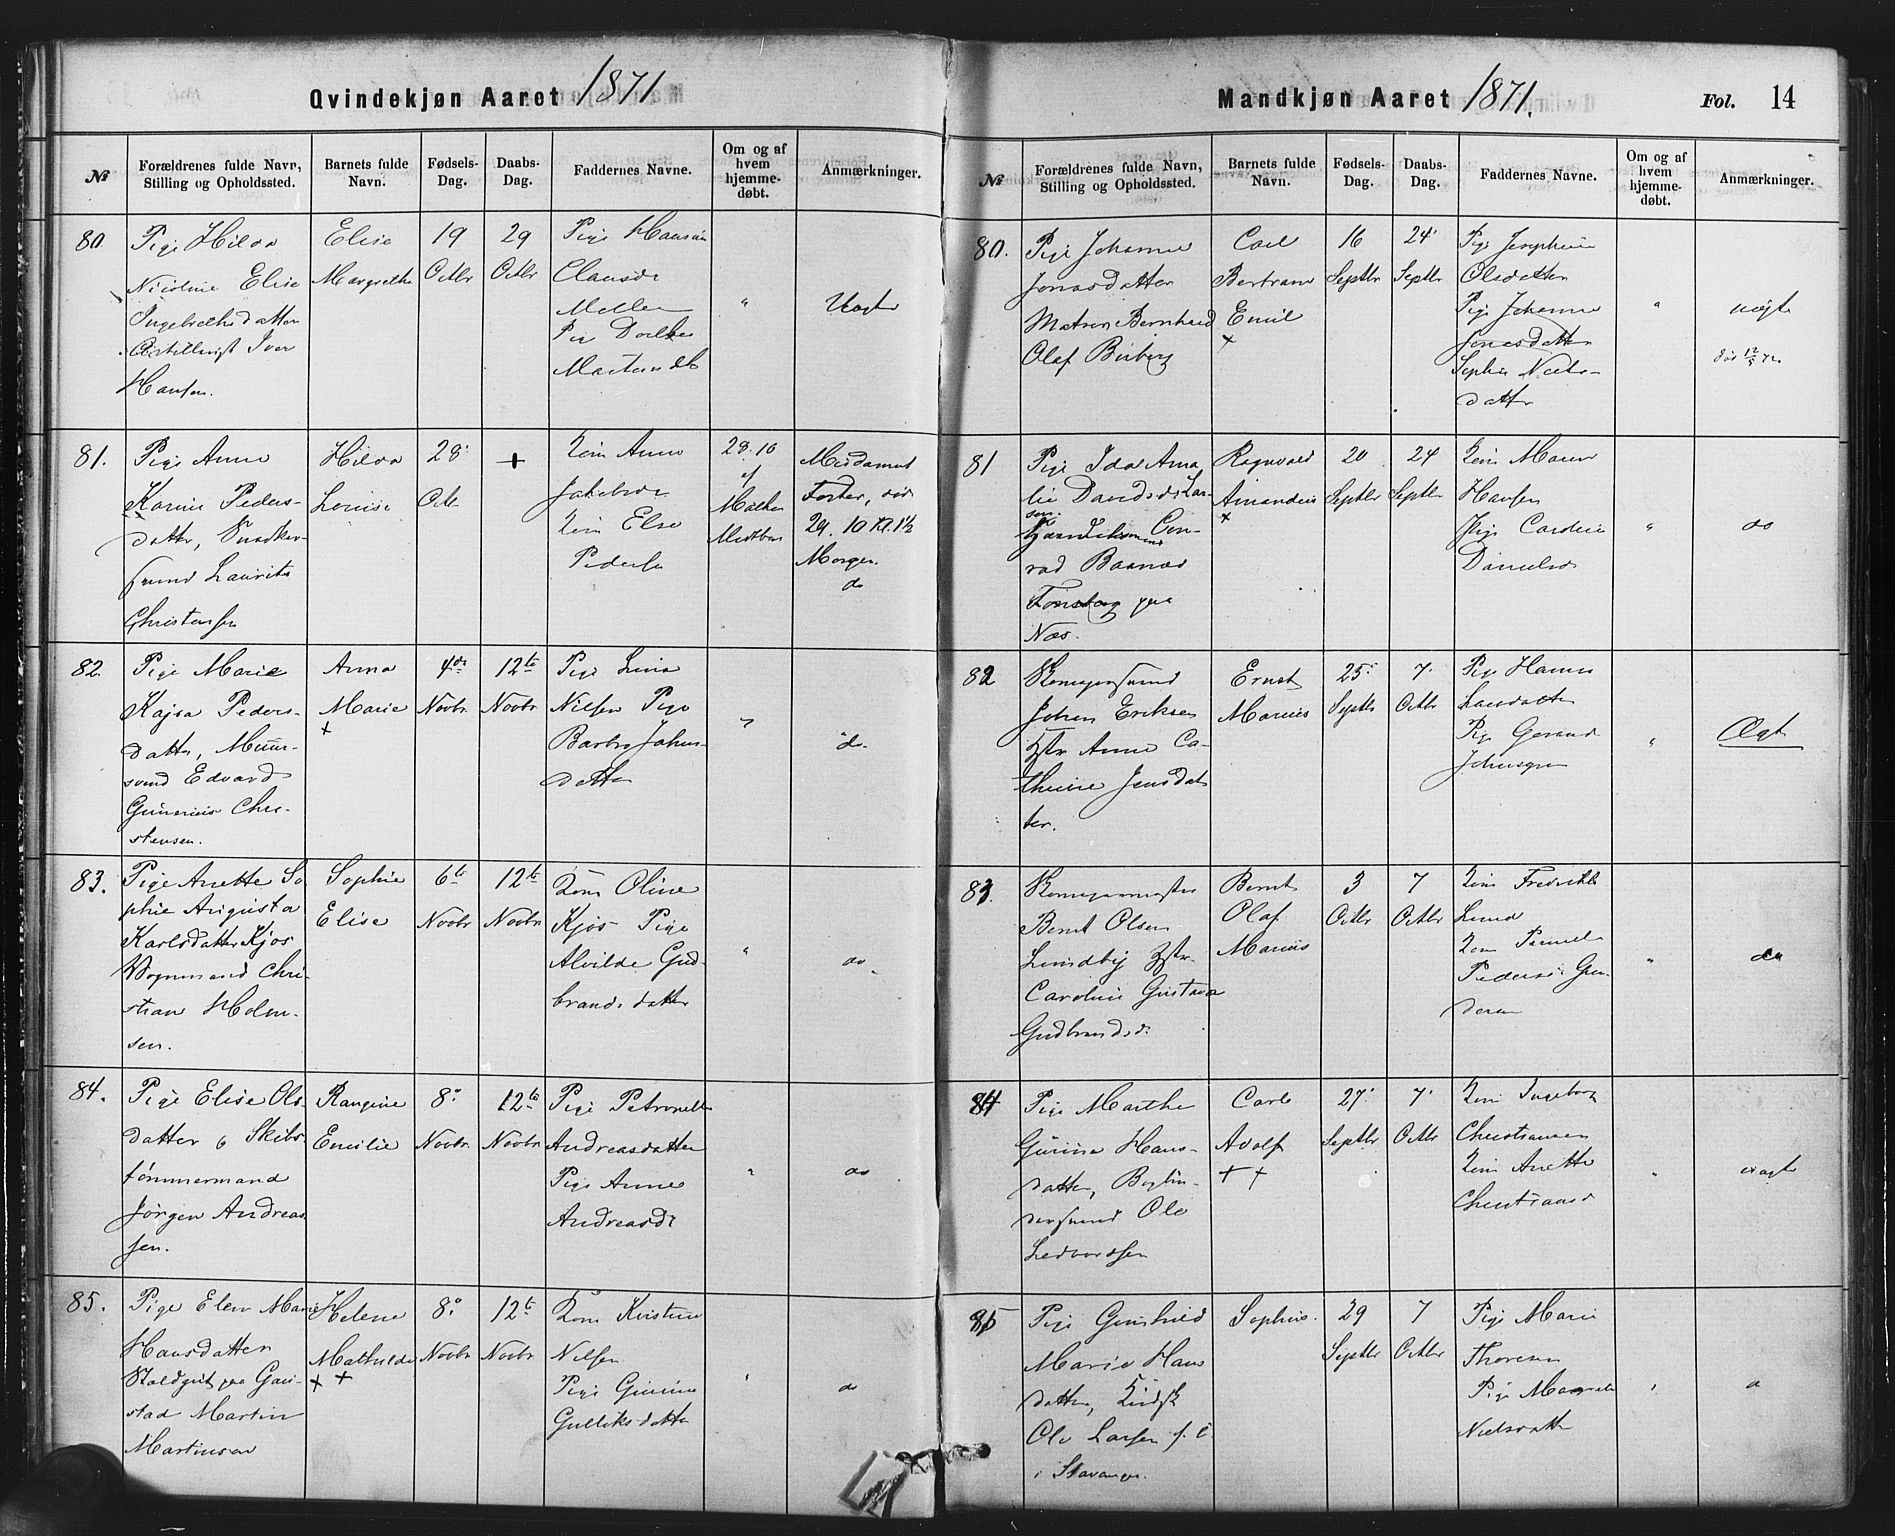 Qvindekjøn Aaret 1871
№
Forældrenes fulde Navn,
Stilling og Opholdssted.
Barnets fulde
Navn.
Fødsels-
Dag.
Daabs-
Dag.
Faddernes Navne.
Om og af
hvem
hjemme-
døbt.
Anmærkninger.
80.
Pige Hilda
Nicoline Elise
Ingebrethsdatter
Artillerist Iver
Hansen.
Elise
Margrethe
19
Octbr
29
Octbr
Pige
Møller
"
Uægte
81.
Pige Anne
Karine Peders-
datter,
svend Laurits
Christensen
Hilda
Louise
28
Oct
+
Kone Anne
Jakobsen
Kone Else
Pedersen
28. 10
af
Foster, død
29. 10 Kl. 1½
Morgen.
do
82.
Pige Marie
Kajsa Peders-
datter, Muur-
svend Edvard
Gunerius Chri-
stensen.
Anna
Marie
+
4de
Novbr
12te
Novbr
Pige Lina
Nilsen Pige
Barbro Johns-
datter
"
do.
83.
Pige Anette So
phie Augusta
Karlsdatter Kjos
Vognmand Chri-
stian Holm-
sen.
Sophie
Elise
6te
Novbr
12te
Novbr
Kone Oline
Kjos Pige
Alvilde Gud-
brandsdatter
"
do
84.
Pige Elise Ols-
datter & Skibs-
tømmermand
Jørgen Andreas
sen.
Rangine
Emilie
8.
Novbr
12te
Novbr
Pige Petronelle
Andreasdatter
Pige Anne
Andreasd.
"
do
85.
Pige Elen Marie
Hansdatter
Staldgut paa Gau-
stad Martin
Martinsen
Helene
Mathilde
+ +
8.
Novbr
12te
Novbr
Kone Kristine
Nilsen
Pige Gunine
Gulliksdatter
"
do
Mandkjøn Aaret 1871.
Fol. 14
№
Forældrenes fulde Navn,
Stilling og Opholdssted.
Barnets fulde
Navn.
Fødsels-
Dag.
Daabs-
Dag.
Faddernes Navne.
Om og af
hvem
hjemme-
døbt.
Anmærkninger.
80.
Pige Johanne
Jonasdatter
Matros Bernhard
Olaf
Carl
Bertram
Emil
+
16
Septbr
24
Septbr
Pige Josephine
Olsdatter
Pige Johanne
Jonasdatter
Sophie Niels-
datter
"
uægte
død 12/5 72
81
Pige Ida Ama
lie Davidsd. Lar-
sen.
Con-
rad
paa
Næs.
Ragnvald
Amandus
+
20
Septbr
24
Septbr
Kone Maren
Hansen
Pige Caroline
Danielsd.
"
do
82
Johan Eriksen
Hstr Anne Ca-
thrine Jensdat
ter.
Ernst
Marius
25
Septbr
7.
Octbr
Pige Hanna
Larsdatter
Pige
Johnsen
"
Ægte
83.
Bernt Olsen
Lundby Hstr.
Caroline Gustava
Gudbrandsd.
Bernt
Olaf
Marius
3
Octbr
7
Octbr
Kone Fredrikke
Lund
Kone
Pedersen
"
do
84
Pige Marthe
Gurine Hans-
datter, Bogbin-
dersvend Ole
Carl
Adolf
+ +
27
Septbr
7.
Octbr
Kone Ingeborg
Christiansen
Kone Anette
Christiansd
"
uægte
85
Pige Gunhild
Marie Hans
datter, Kudsk
Ole Larsen
i Stavanger.
Sophus.
29
Septbr
7
Octbr
Pige Marie
Thoresen
Pige Margrete
Nielsdatter
"